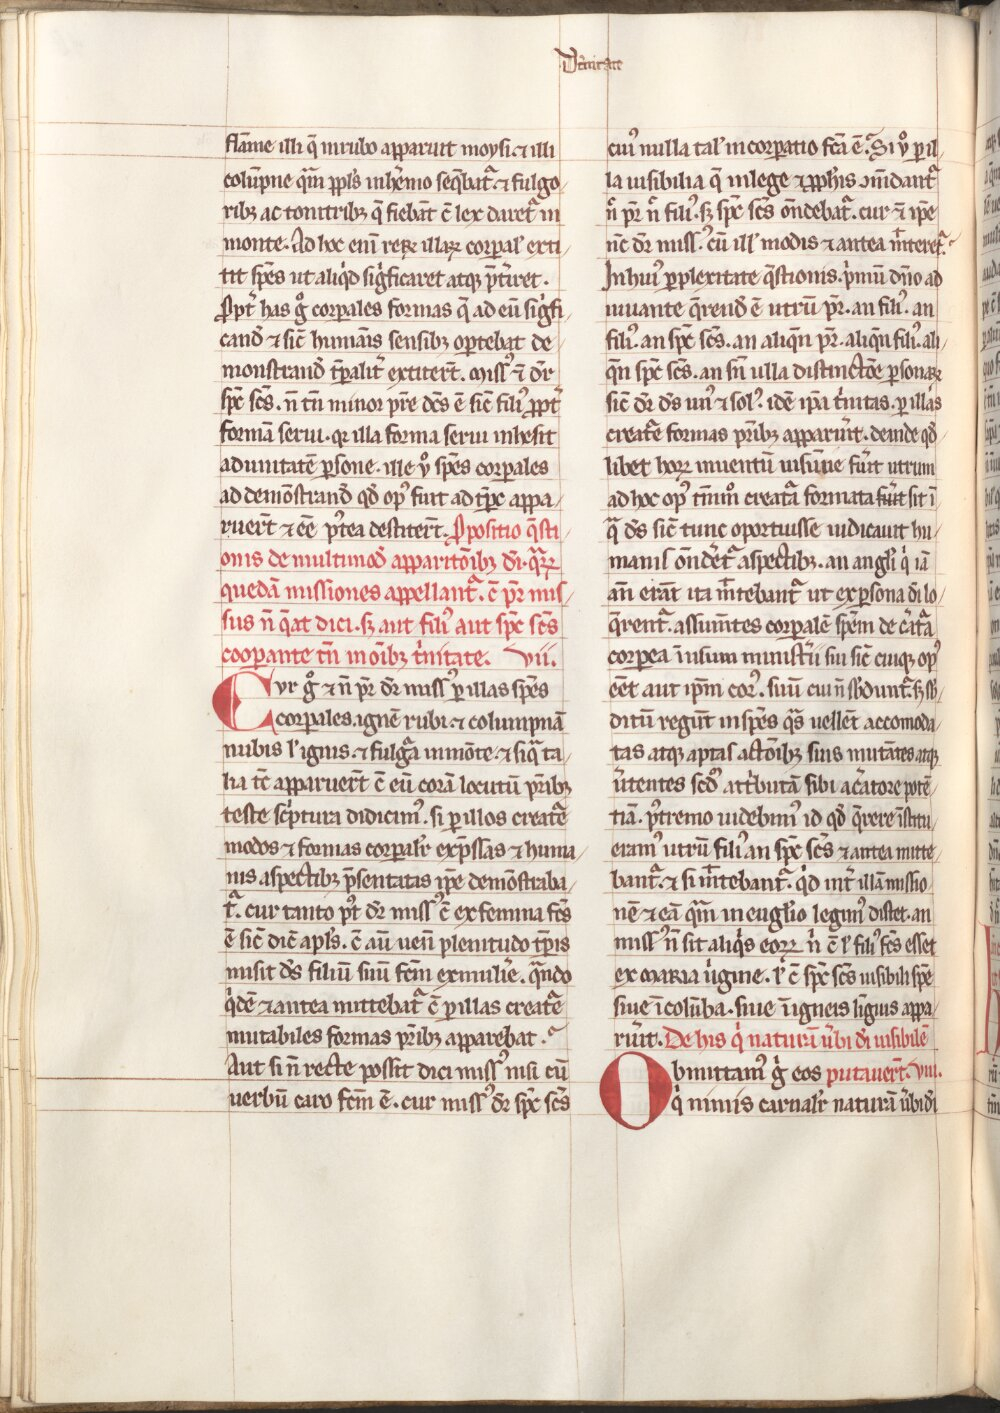 D trinitate
flāme illi q̄ in rubo apparuit moysi. ⁊ illi
colūpne quā ppl's in h̓emo seq̄bat᷑. ⁊ fulgo
ribꝫ ac tonitribꝫ q̄ fiebāt c̄ lex daret᷑ in
monte. Ad hoc enī reꝝ illaꝝ corpal' exti
tit sp̄es ut aliq'd sig̓ficaret atqꝫ p̄t̓iret.
Ꝓpt̓ has g̊ corꝑales formas q̄ ad eū sig̓fi
cand̓ ⁊ sic̄ humāis sensibꝫ oꝑtebat de
monstrand̓ tp̄alit̓ extiter̄t. miss᾽ ē dr̄
spc̄ scs̄. n̄ tn̄ minor pr̄e dc̄s ē sic̄ fili᾽ ꝓpt̓
formā serui. qr illa forma serui inhesit
ad unitatē ꝑsone. ille v̊ sp̄es corꝑales
ad demōstrand̓ qd̓ op᾽ fuit ad tp̄c appa
ruer̄t ⁊ eē p᾽tea destiter̄t. Ꝓpositio q̄sti
onis de multimod̓ apparitōibꝫ dī. q̄ꝝ
quedā missiones appellant᷑. c̄ pr̄ mis
sus n̄ q̄at dici. sꝫ aut fili᾽ aut spc̄ scs̄
cooꝑante tn̄ in oībꝫ t̓nitate. vii.
Cvr g̊ ⁊ n̄ pr̄ dr̄ miss᾽ ꝑ illas sp̄es
corꝑales. ignē rubi ⁊ columpnā
nubis l' ignis ⁊ fulg᷑a in mōte. ⁊ siq᷑ ta
lia tc̄ apparuer̄t c̄ eū corā locutū pr̄ibꝫ
teste sc̓ptura didicim᾽. si ꝑ illos creat̄e
modos ⁊ formas corꝑalit̓ exp̄ssas ⁊ huma
nis aspectibꝫ p̄sentatas ip̄e demōstraba
t᷑. cur tanto p᾽t dr̄ miss᾽ c̄ ex femina fc̄s
ē sic̄ dic̄ apl's. c̄ aū uen̄ plenitudo tp̄is
misit ds̄ filiū suū fc̄m ex muliēe. q᷑ndo
q'dē ⁊ antea mittebat᷑ c̄ ꝑ illas creat̄e
mutabiles formas pr̄ibꝫ apparebat.
Aut si n̄ recte possit dici miss᾽ nisi cū
uerbū caro fc̄m ē. cur miss᾽ dr̄ spc̄ scs̄
cui᾽ nulla tal' incorꝑatio fc̄a ē. Si v̊ ꝑ il
la uisibilia q̄ in lege ⁊ ꝓphis om̄dant᷑
n̄ pr̄ n̄ fili᾽. sꝫ spc̄ scs̄ on̄debat᷑. cur ē ip̄e
nc̄ dr̄ miss᾽. cū ill' modis ⁊ antea m̓teret᷑.
In hui᾽ ꝑplexitate q̄stionis. p'mū dn̄o ad
iuuante q̄rend̓ ē utrū pr̄. an fili᾽. an
fili᾽. an spc̄ scs̄. an aliqn̄ pr̄. aliqn̄ fili᾽. ali
qn̄ spc̄ scs̄. an sn̄ ulla distinctōe ꝑsonaꝝ
sic̄ dr̄ ds̄ un᾽ ⁊ sol᾽. idē ip̄a t̓nitas. ꝑ illas
creat̄e formas pr̄ibꝫ apparu̓it. deinde qd̓
libet hoꝝ inuentū uisūue fu̓it utrum
ad hoc op᾽ tm̄m̊ creat᷑a formata fūit sit ī
q᷑ ds̄ sic̄ tunc oportuisse iudicauit hu
manis on̄d̓et᷑ aspectibꝫ. an angl'i q' iā
an̄ erāt ita m̓tebant᷑ ut ex ꝑsona dī lo
q̄rent᷑. assum̄tes corꝑalē spēm de c̓at᷑a
corpea ī usum ministe̓ii sui sic̄ cuiqꝫ op᾽
eēt aut ip̄m cor᾽. suū cui n̄ sb̓dunt᷑. sꝫ sb̓
ditū regūt in sp̄es q᷑s uellēt accomoda
tas atqꝫ aptas actōibꝫ suis mutātes atqꝫ
u̓tentes scd̓ att̓butā sibi a c̓atore potē
tiā. p᾽tremo uidebim᾽ id qd̓ q̄rere īstitu
eram᾽ utrū fili᾽ an spc̄ scs̄ ⁊ antea mitte
bant᷑. ⁊ si m̓tebant᷑. q'd int̓ illā missio
nē ⁊ eā quā in eugl'io legim᾽ distet. an
miss᾽ n̄ sit aliq's eoꝝ n' c̄ l' fili᾽ fc̄s esset
ex maria u̓gine. l' c̄ spc̄ scs̄ uisibili spē
siue ī colūba. siue ī igneis līguis appa
ru̓it. De his q' naturā u̓bi dī uisibilē
Obmittam᾽ g̊ eos putauer̄t. viii.
q' nimis carnalit̓ naturā u̓bi dī